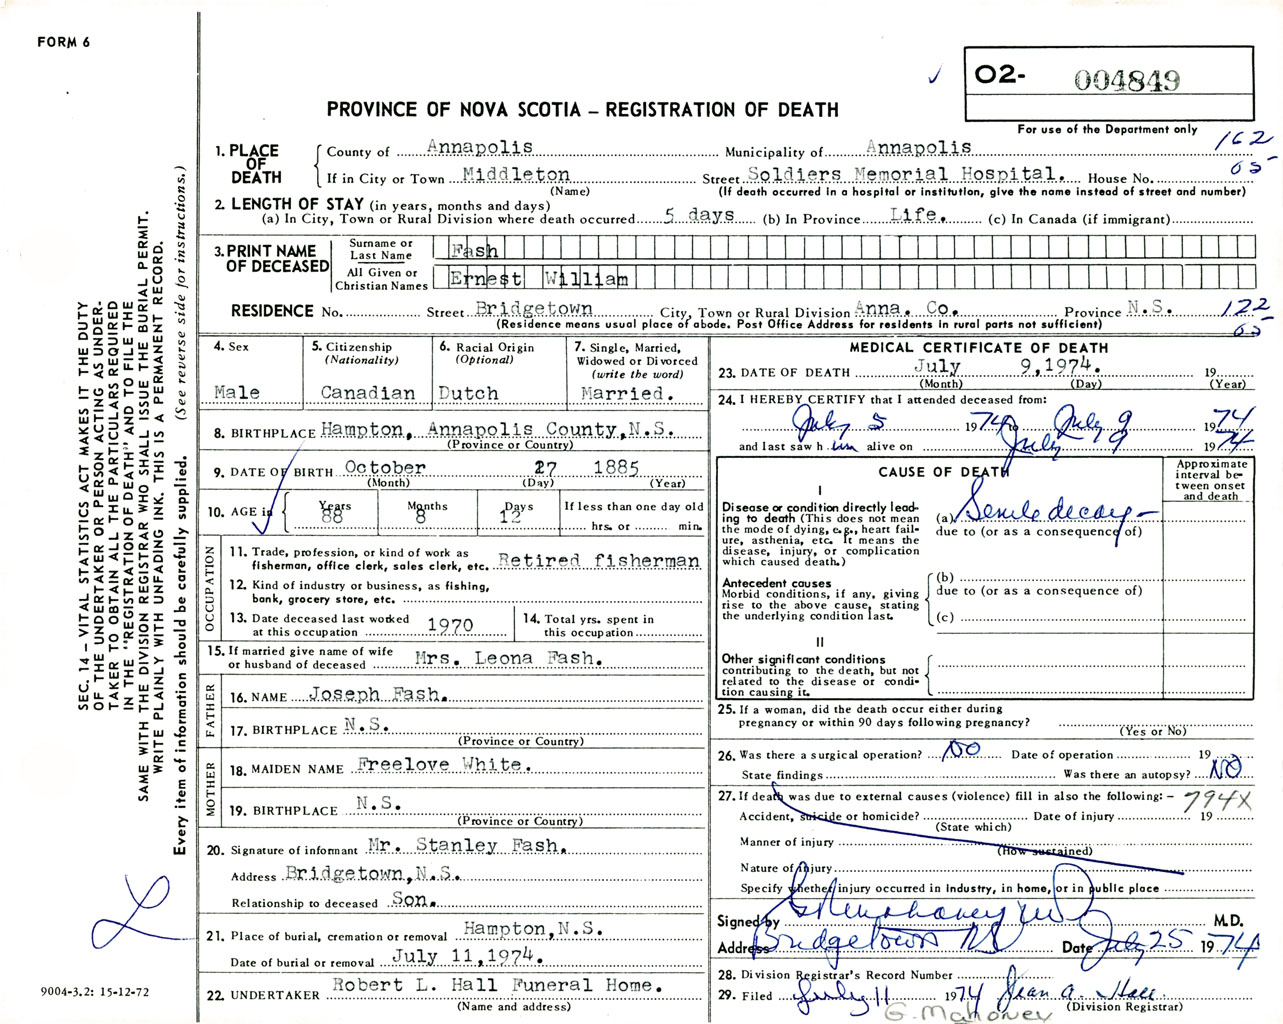 FORM 6
O2- 004849
PROVINCE OF NOVA SCOTIA – REGISTRATION OF DEATH
For use of the Department only
162
65
1. PLACE OF DEATH
County of Annapolis Municipality of Annapolis
If in City or Town Middleton Street Soldiers Memorial Hospital. House No.
(Name) (If death occurred in a hospital or institution, give the name instead of street and number)
2. LENGTH OF STAY (in years, months and days)
(a) In City, Town or Rural Division where death occurred 5 days (b) In Province Life. (c) In Canada (if immigrant)
3. PRINT NAME OF DECEASED
Surname or Last Name Fash
All Given or Christian Names Ernest William
RESIDENCE No. Street Bridgetown City, Town or Rural Division Anna. Co. Province N.S.
(Residence means usual place of abode. Post Office Address for residents in rural parts not sufficient)
122
65
4. Sex
Male
5. Citizenship
(Nationality)
Canadian
6. Racial Origin
(Optional)
Dutch
7. Single, Married, Widowed or Divorced
(write the word)
Married.
8. BIRTHPLACE Hampton, Annapolis County, N.S.
(Province or Country)
9. DATE OF BIRTH October 27 1885
(Month) (Day) (Year)
10. AGE in
Years 88
Months 8
Days 12
If less than one day old
hrs. or min.
OCCUPATION
11. Trade, profession, or kind of work as
fisherman, office clerk, sales clerk, etc. Retired fisherman
12. Kind of industry or business, as fishing,
bank, grocery store, etc.
13. Date deceased last worked
at this occupation 1970
14. Total yrs. spent in
this occupation
15. If married give name of wife
or husband of deceased Mrs. Leona Fash.
FATHER
16. NAME Joseph Fash.
17. BIRTHPLACE N.S.
(Province or Country)
MOTHER
18. MAIDEN NAME Freelove White.
19. BIRTHPLACE N.S.
(Province or Country)
20. Signature of informant Mr. Stanley Fash.
Address Bridgetown, N.S.
Relationship to deceased Son.
21. Place of burial, cremation or removal Hampton, N.S.
Date of burial or removal July 11, 1974.
22. UNDERTAKER Robert L. Hall Funeral Home.
(Name and address)
MEDICAL CERTIFICATE OF DEATH
23. DATE OF DEATH July 9, 1974. 19
(Month) (Day) (Year)
24. I HEREBY CERTIFY that I attended deceased from:
July 5 1974 to July 9 1974
and last saw h im alive on July 9 1974
CAUSE OF DEATH
Approximate interval between onset and death
I
Disease or condition directly leading to death (This does not mean the mode of dying, e.g., heart failure, asthenia, etc. It means the disease, injury, or complication which caused death.)
(a) Senile decay -
due to (or as a consequence of)
Antecedent causes
Morbid conditions, if any, giving rise to the above cause, stating the underlying condition last.
(b)
due to (or as a consequence of)
(c)
II
Other significant conditions
contributing to the death, but not related to the disease or condition causing it.
25. If a woman, did the death occur either during
pregnancy or within 90 days following pregnancy?
(Yes or No)
26. Was there a surgical operation? NO Date of operation 19
State findings Was there an autopsy? NO
27. If death was due to external causes (violence) fill in also the following: – 794X
Accident, suicide or homicide? Date of injury 19
(State which)
Manner of injury
(How sustained)
Nature of injury
Specify whether injury occurred in industry, in home, or in public place
Signed by G Mahoney MD M.D.
Address Bridgetown NS Date July 25 1974
28. Division Registrar's Record Number
29. Filed July 11 1974 Jean A. Hall.
(Division Registrar)
G. Mahoney
SEC. 14 – VITAL STATISTICS ACT MAKES IT THE DUTY
OF THE UNDERTAKER OR PERSON ACTING AS UNDER-
TAKER TO OBTAIN ALL THE PARTICULARS REQUIRED
IN THE "REGISTRATION OF DEATH" AND TO FILE THE
SAME WITH THE DIVISION REGISTRAR WHO SHALL ISSUE THE BURIAL PERMIT.
WRITE PLAINLY WITH UNFADING INK. THIS IS A PERMANENT RECORD.
Every item of information should be carefully supplied. (See reverse side for instructions.)
9004-3.2: 15-12-72